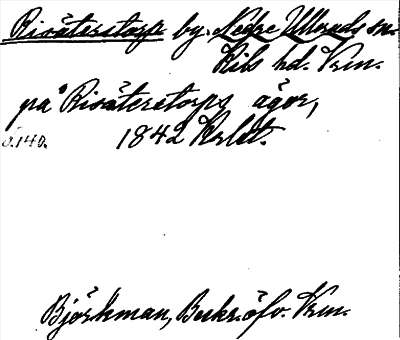 Risäterstorp by. Nedre Ulleruds sn.
Kils hd. Vrm.
på Risäterstorps ägor,
s. 140. 1842 Krlst.
Björkman, Beskr. öfv. Vrm.